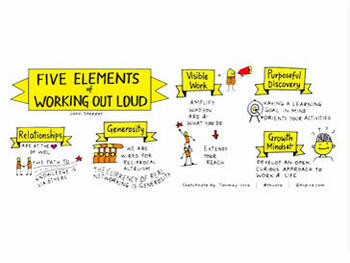 FIVE ELEMENTS
of
WORKING OUT LOUD
John Stepper
Relationships
ARE AT THE OF WOL
THE PATH TO
KNOWLEDGE IS
VIA OTHERS
Generosity
WE ARE
WIRED FOR
RECIPROCAL
ALTRUISM
THE CURRENCY OF REAL
NETWORKING IS GENEROSITY
Visible
Work
AMPLIFY
WHO YOU
ARE &
WHAT YOU DO
EXTENDS
YOUR
REACH
Purposeful
Discovery
HAVING A LEARNING
GOAL IN MIND
ORIENTS YOUR ACTIVITIES
Growth
Mindset
DEVELOP AN OPEN,
CURIOUS APPROACH TO
WORK & LIFE
Sketchnote by Tanmay Vora